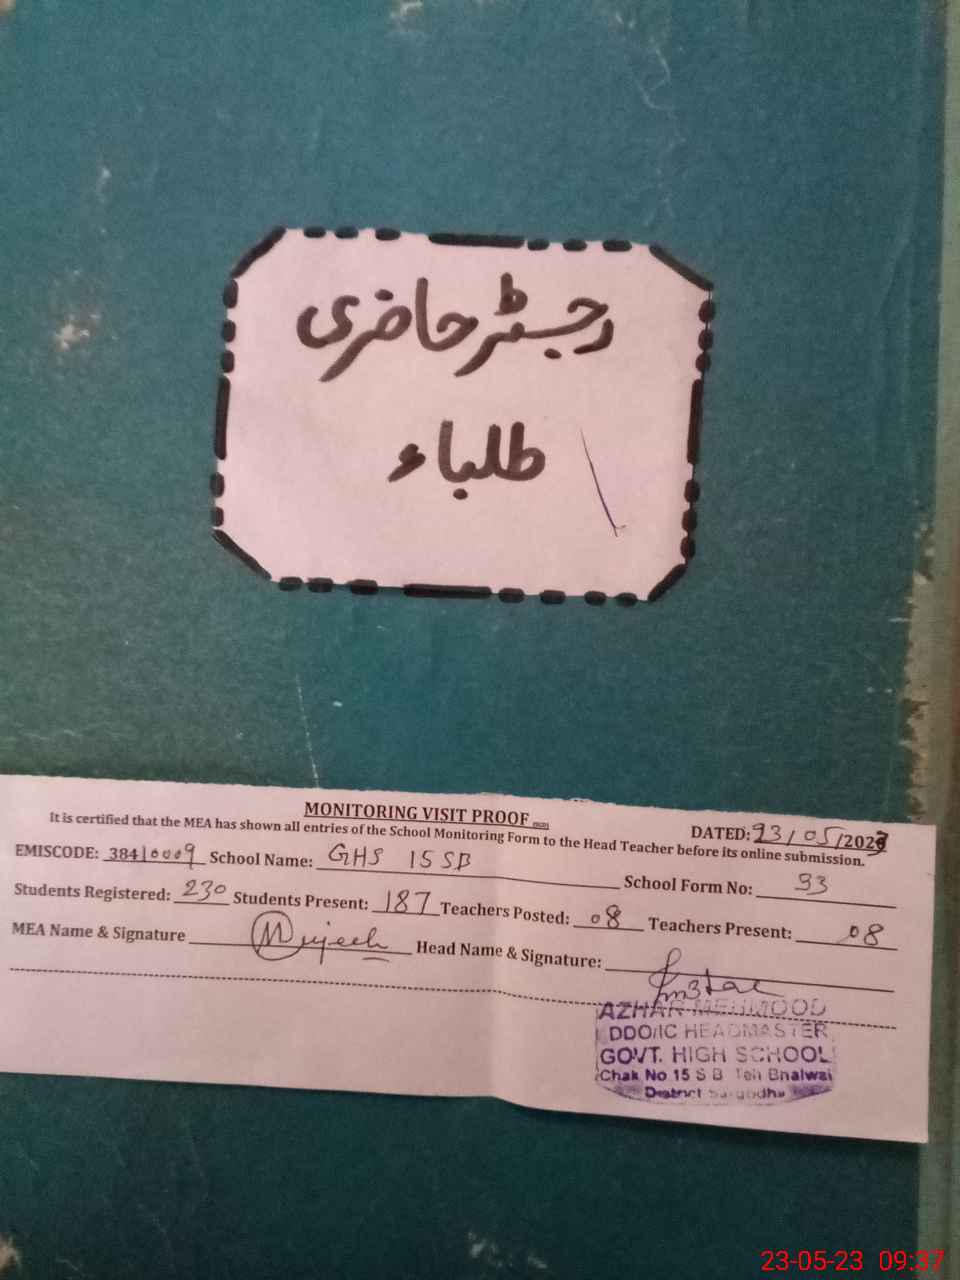 رجسٹر حاضری
طلباء
MONITORING VISIT PROOF
DATED: 23/05/2023
It is certified that the MEA has shown all entries of the School Monitoring Form to the Head Teacher before its online submission.
EMISCODE: 38410009 School Name: GHS 15 SB School Form No: 93
Students Registered: 230 Students Present: 187 Teachers Posted: 08 Teachers Present: 08
MEA Name & Signature Head Name & Signature:
AZHAR MEHMOOD
DDO/IC HEADMASTER
GOVT. HIGH SCHOOL
Chak No 15 S B Teh Bhalwal
District Sargodha
23-05-23 09:37